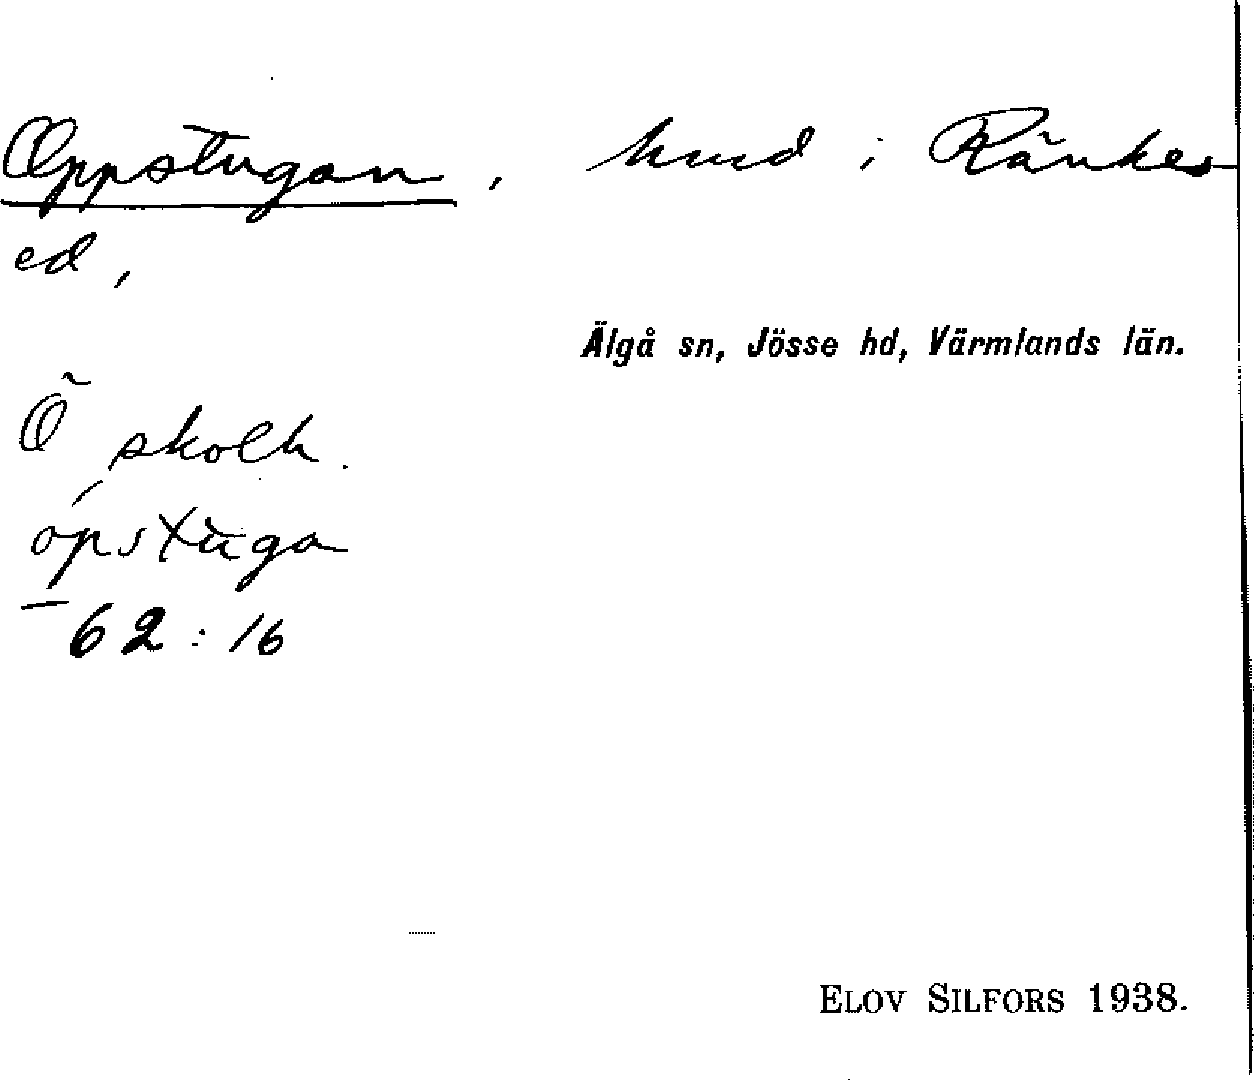 Oppstugan, hmd i Ränkes
ed,
Älgå sn, Jösse hd, Värmlands län.
Ö skolh.
ópstùga
62:16
ELOV SILFORS 1938.